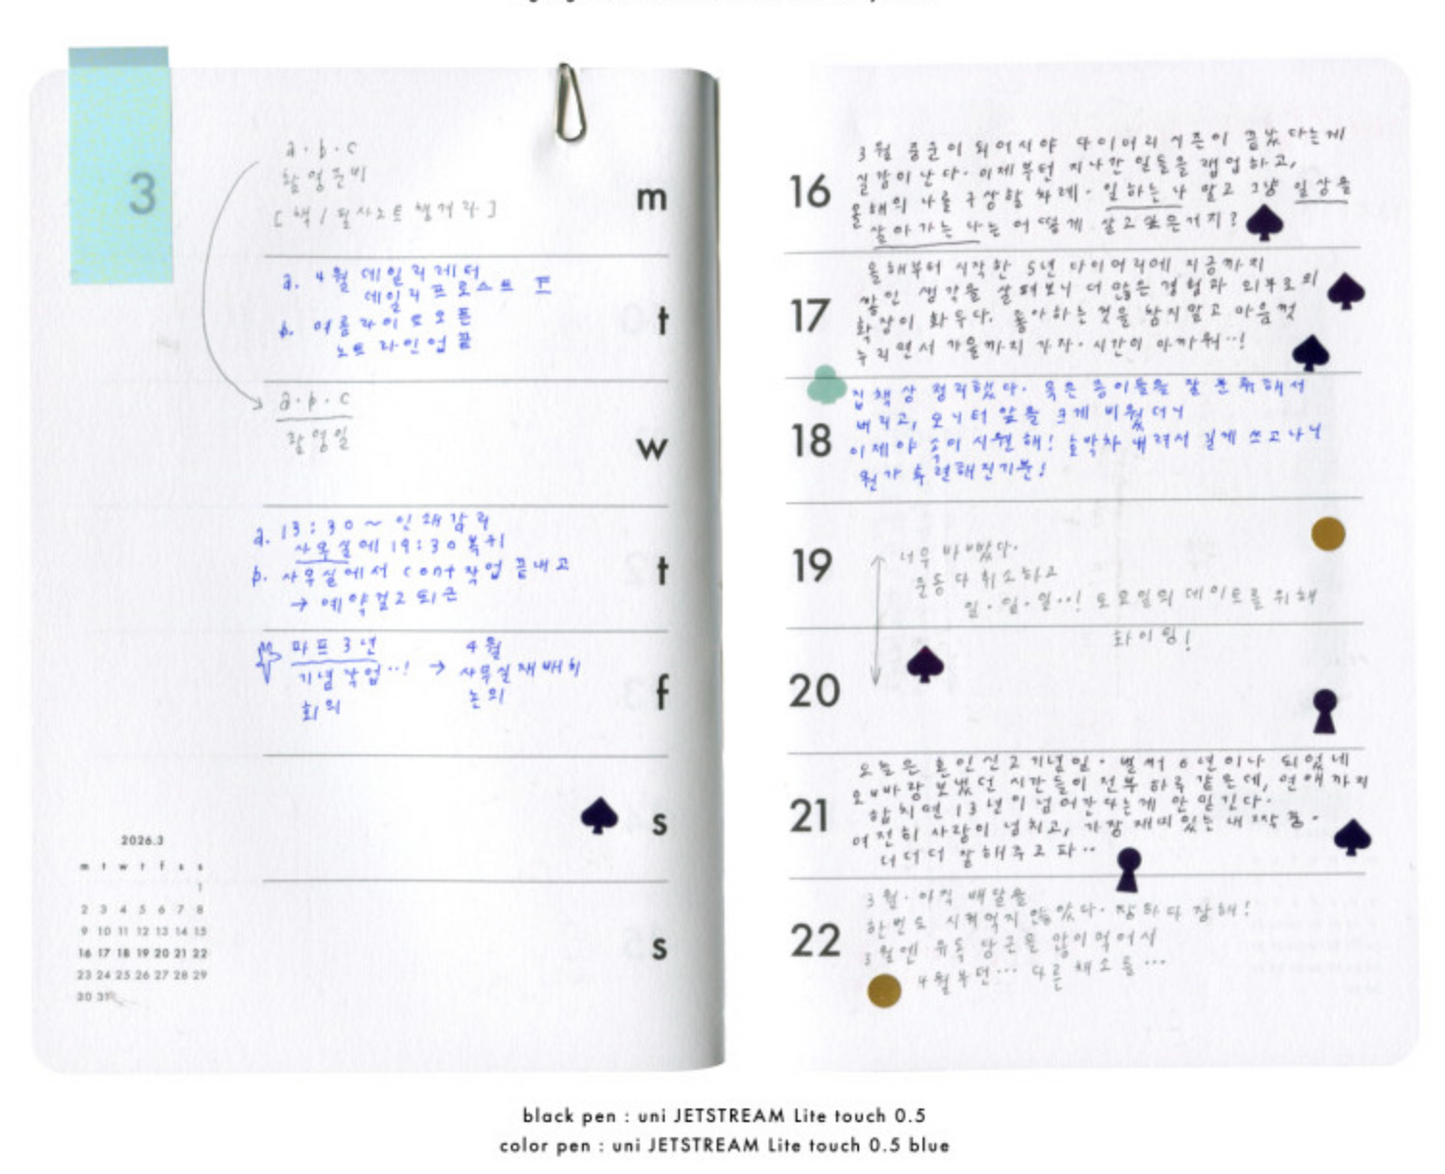 3
a.b.c
촬영준비
[책/필사노트 챙겨라]
m
a. 4월 데일리레터
데일리프로스트 표
t
b. 여름라이트 오픈
노트 라인업 끝
a.b.c
촬영일
w
a. 13:30~ 인쇄감리
사무실에 19:30 복귀
t
b. 사무실에서 cont 작업 끝내고
→ 예약걸고 퇴근
마프 3년
기념 작업..! → 4월
사무실 재배치
회의
논의
f
s
s
2026.3
m t w t f s s
1
2 3 4 5 6 7 8
9 10 11 12 13 14 15
16 17 18 19 20 21 22
23 24 25 26 27 28 29
30 31
16
3월 중순이 되어서야 다이어리 시즌이 끝났다는게
실감이 난다. 이제부턴 지나간 일들을 랩업하고,
올해의 나를 구상할 차례. 일하는 나 말고 그냥 일상을
살아가는 나는 어떻게 살고싶은거지?
17
올해부터 시작한 5년 다이어리에 지금까지
쌓인 생각을 살펴보니 더 많은 경험과 외부로의
확장이 화두다. 좋아하는 것을 남지말고 마음껏
누리면서 가을까지 가자. 시간이 아까워..!
18
집 책상 정리했다. 묵은 종이들을 잘 분류해서
버리고, 모니터 앞을 크게 비웠더니
이제야 속이 시원해! 노박차 내려서 길게 쓰고나니
뭔가 후련해진기분!
19
너무 바빴다.
운동 다 취소하고
일.일.일..! 토요일의 데이트를 위해
화이팅!
20
21
오늘은 혼인신고기념일. 벌써 6년이나 되었네
오빠랑 보냈던 시간들이 전부 하루같은데, 연애까지
합치면 13년이 넘어간다는게 안 믿긴다.
여전히 사랑이 넘치고, 가장 재미있는 내 짝꿍.
더더더 잘해주고파..
22
3월. 아직 배달을
한번도 시켜먹지 않았다. 장하다 장해!
3월엔 유독 당근을 많이먹어서
4월부턴... 다른 채소를...
black pen : uni JETSTREAM Lite touch 0.5
color pen : uni JETSTREAM Lite touch 0.5 blue